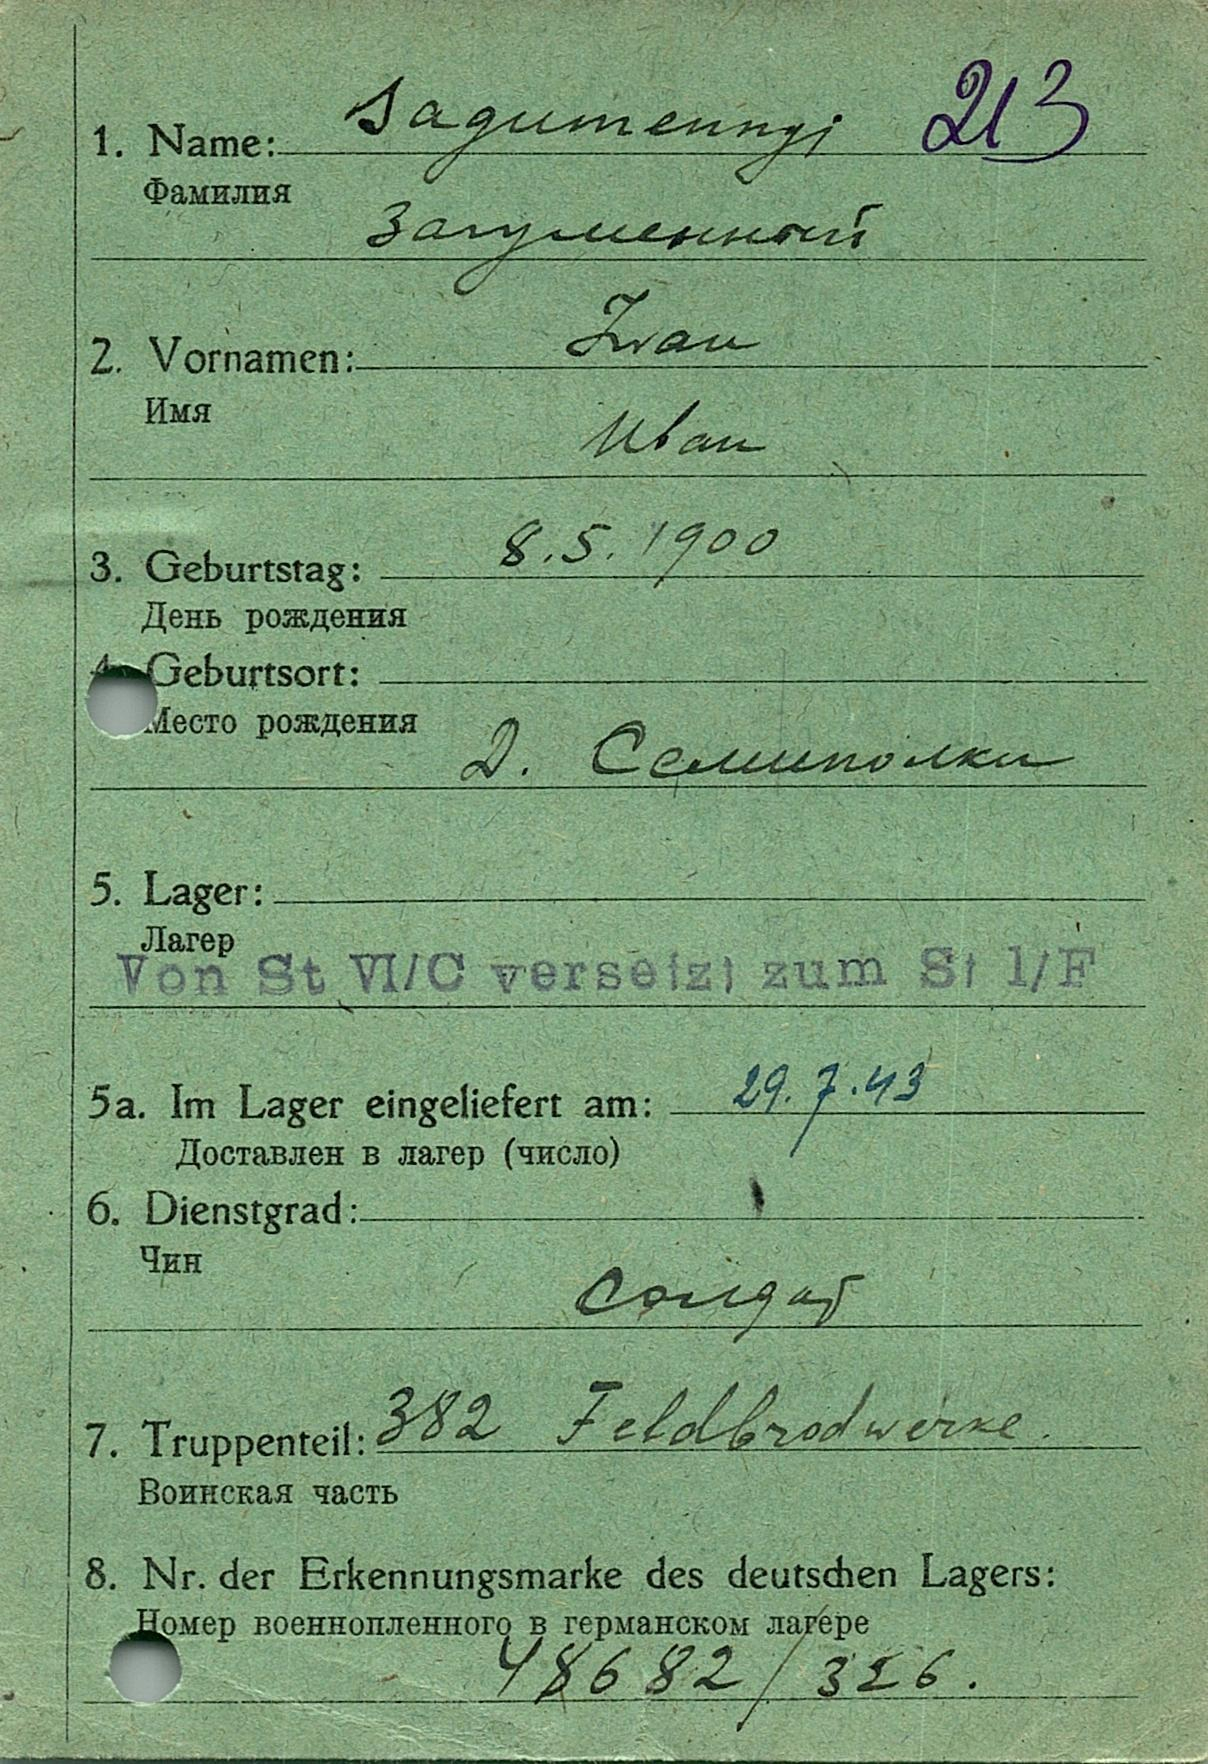 1. Name: Sagumennyj 213
Фамилия
Загуменный
2. Vornamen: Iwan
Имя
Иван
3. Geburtstag: 8.5.1900
День рождения
4. Geburtsort:
Место рождения
Д. Семиполки
5. Lager:
Лагер
Von St VI/C versetzt zum St I/F
5a. Im Lager eingeliefert am: 29.7.43
Доставлен в лагер (число)
6. Dienstgrad:
Чин
Солдат
7. Truppenteil: 382 Feldbrodwerke.
Воинская часть
8. Nr. der Erkennungsmarke des deutschen Lagers:
Номер военнопленного в германском лагере
48682/326.